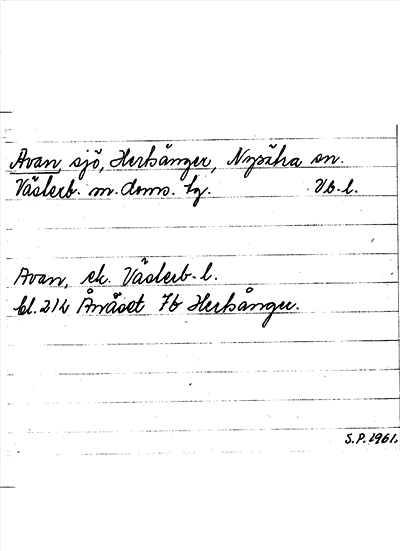 Avan, sjö, Herrsånger, Nysätra sn.
Västerb. m. doms. hg. Vb. l.
Avan, ek. Västerb. l.
bl. 212 Ånäset 7b Herrsånger.
S.P. 1961.